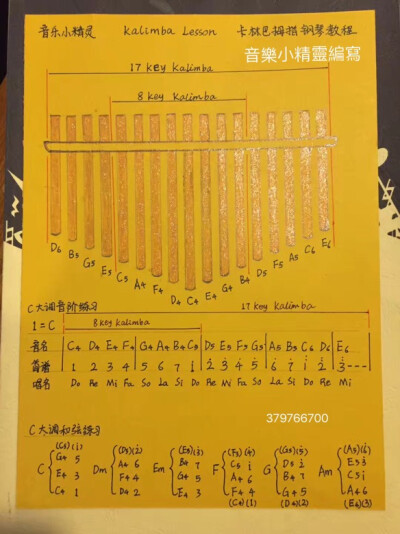 音乐小精灵 Kalimba Lesson 卡林巴拇指钢琴教程
音樂小精靈編寫
17 key Kalimba
8 key Kalimba
D6 B5 G5 E5 C5 A4 F4 D4 C4 E4 G4 B4 D5 F5 A5 C6 E6
C大调音阶练习
17 key Kalimba
1=C
8 key Kalimba
音名 C4 D4 E4 F4 G4 A4 B4 C5 D5 E5 F5 G5 A5 B5 C6 D6 E6
简谱 1 2 3 4 5 6 7 i 2 3 4 5 6 7 i 2 3---
唱名 Do Re Mi Fa So La Si Do Re Mi Fa So La Si Do Re Mi
379766700
C大调和弦练习
(C5)(i) (D5)(2) (E5)(3) (F5)(4) (G5)(5) (A5)(6)
G4 5 A4 6 B4 7 C5 i D5 2 E5 3
C E4 3 Dm F4 4 Em G4 5 F A4 6 G B4 7 Am C5 i
C4 1 D4 2 E4 3 F4 4 G4 5 A4 6
(C4)(1) (D4)(2) (E4)(3)